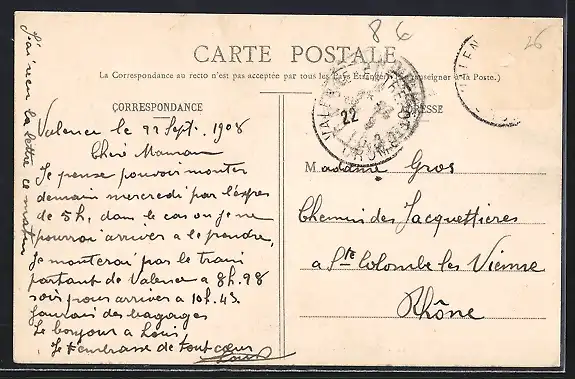 86
26
CARTE POSTALE
La Correspondance au recto n'est pas acceptée par tous les Pays Étrangers. (Se renseigner à la Poste.)
CORRESPONDANCE
ESSE
22
J'ai reçu la lettre ce matin
Valence le 22 Sept. 1908
Chère Maman
Je pense pouvoir monter
demain mercredi par l'expres
de 5h, dans le cas ou je ne
pourrai arriver a le prendre,
Je monterai par le train
partant de Valence a 8h.28
soir pour arriver a 10h.43
Jaurais des bagages
Le bonjour a Louis,
Je t'embrasse de tout cœur
Louis
Madame Gros
Chemin des Jacquettieres
a Ste Colombe les Vienne
Rhône